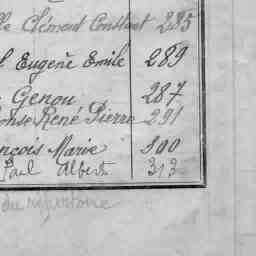 lle Clément Constant 285
l Eugène Emile 289
Genou 287
onse René Pierre 291
nçois Marie 300
Paul Albert 313
du répertoire